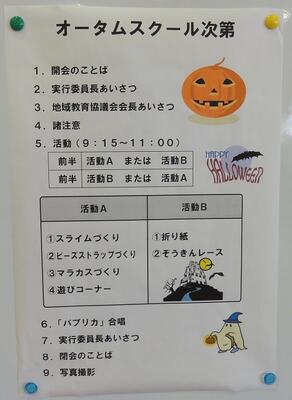 オータムスクール次第
1．開会のことば
2．実行委員長あいさつ
3．地域教育協議会会長あいさつ
4．諸注意
5．活動（9：15～11：00）
前半 活動A または 活動B
前半 活動B または 活動A
HAPPY
HALLOWEEN
活動A 活動B
①スライムづくり ①折り紙
②ビーズストラップづくり ②ぞうきんレース
③マラカスづくり
④遊びコーナー
6．「パプリカ」合唱
7．実行委員長あいさつ
8．閉会のことば
9．写真撮影